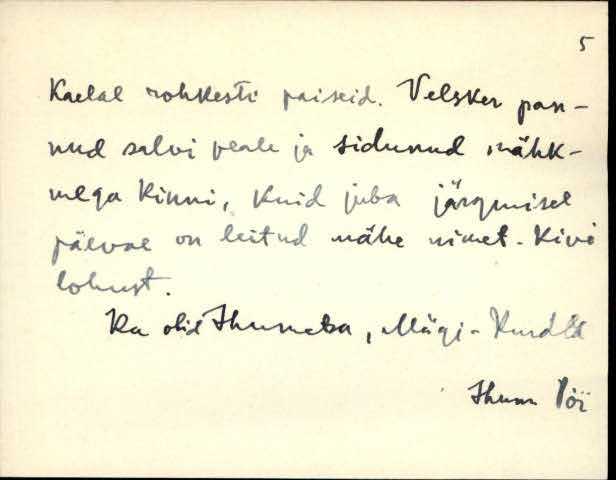 5
Kaelal rohkesti paiseid. Velsker pan-
nud salvi peale ja sidunud mähk-
mega kinni, kuid juba järgmisel
päeval on leitud mähe nimet. Kivi
lohust.
Ka olid Ihumetsa, Mägi-Kurdla
Ihum Pöi